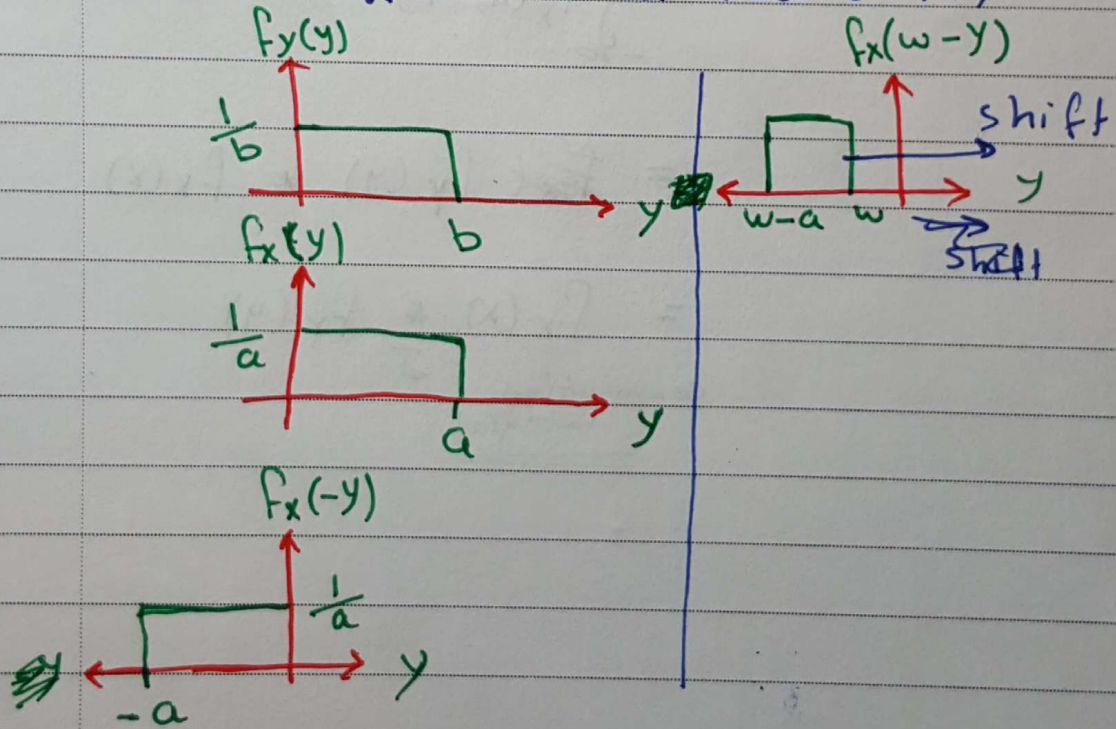 fy(y)
1/b
b
y
fx(y)
1/a
a
y
fx(-y)
1/a
-a
y
fx(w-y)
shift
w-a
w
y
shift